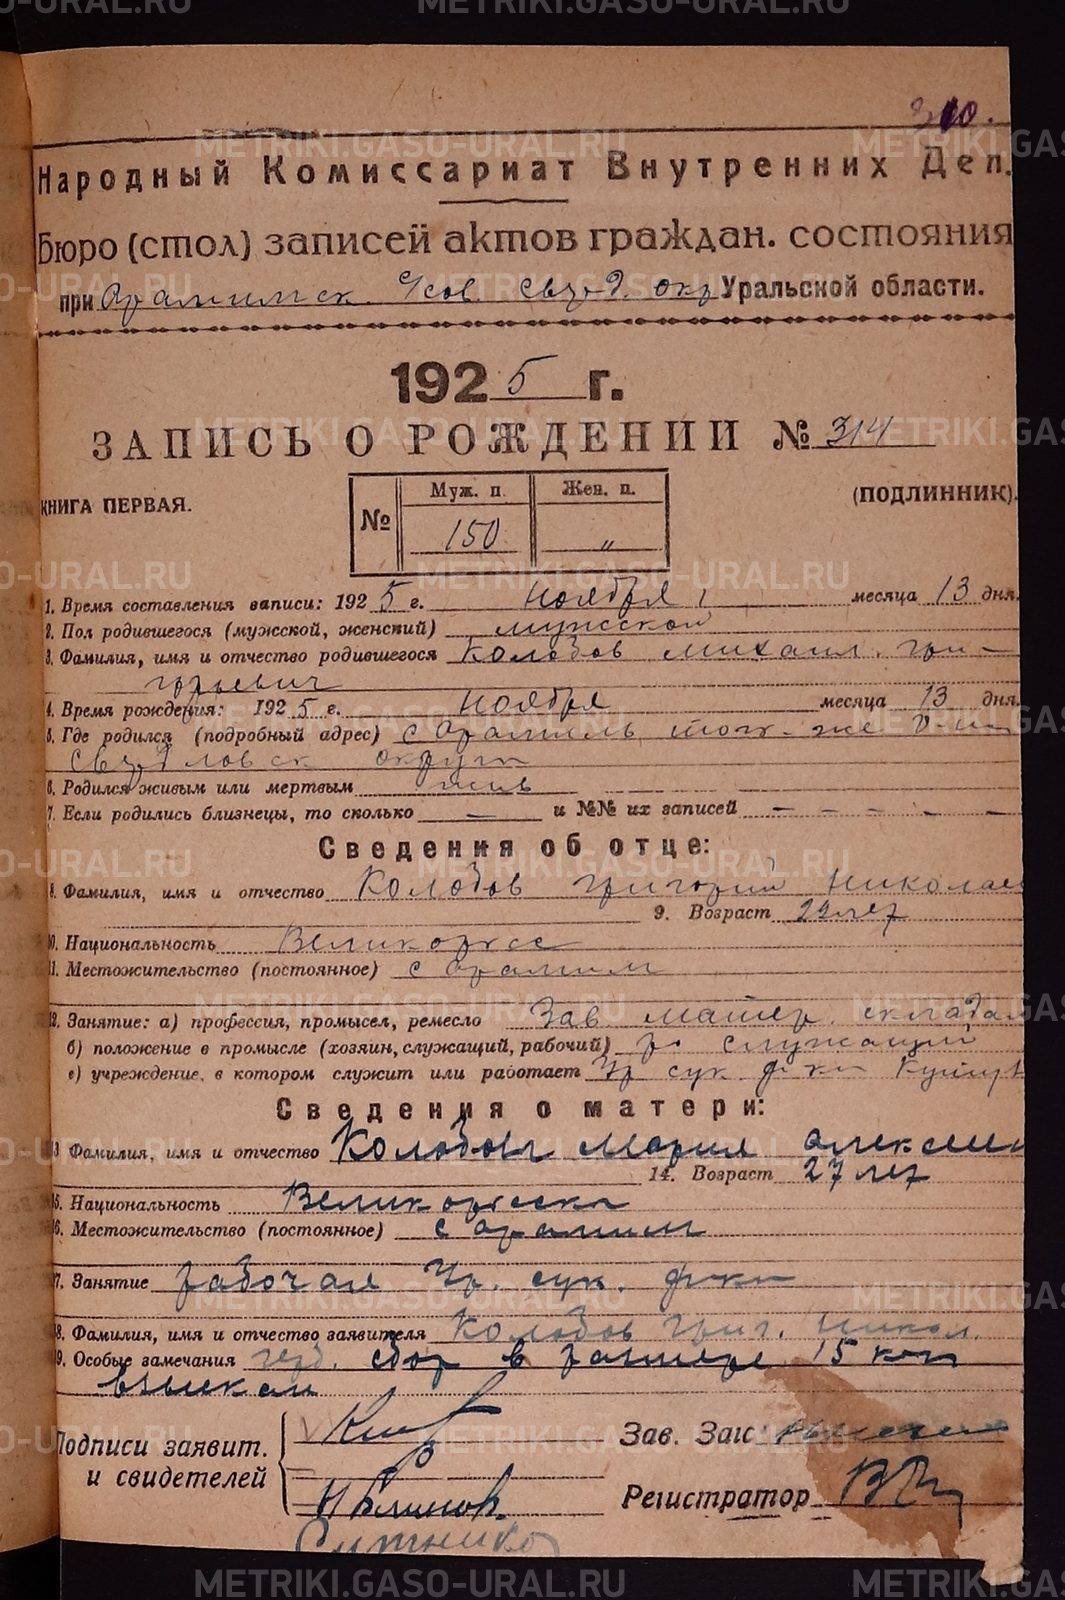 310.
Народный Комиссариат Внутренних Дел.
Бюро (стол) записей актов граждан. состояния
при Арамильск. Усов. Свердл. окр Уральской области.
1925 г.
ЗАПИСЬ О РОЖДЕНИИ № 314
КНИГА ПЕРВАЯ.
(ПОДЛИННИК).
№ Муж. п. Жен. п.
150 "
1. Время составления записи: 1925 г. ноября месяца 13 дня.
2. Пол родившегося (мужской, женский) мужской
3. Фамилия, имя и отчество родившегося Колобов Михаил Гри-
горьевич
4. Время рождения: 1925 г. ноября месяца 13 дня.
5. Где родился (подробный адрес) с Арамиль, той-же
Свердловск округа
6. Родился живым или мертвым жив
7. Если родились близнецы, то сколько — и №№ их записей — — — — —
Сведения об отце:
8. Фамилия, имя и отчество Колобов Григорий Николаев
9. Возраст 29 лет
10. Национальность Великоросс
11. Местожительство (постоянное) с Арамил
12. Занятие: а) профессия, промысел, ремесло Зав. матер. складом
б) положение в промысле (хозяин, служащий, рабочий) служащий
в) учреждение, в котором служит или работает Ар сук ф-ка
Сведения о матери:
13 Фамилия, имя и отчество Колобова Мария Алексеев
14. Возраст 27 лет
15. Национальность Великоросска
16. Местожительство (постоянное) с Арамил
17. Занятие рабочая Ар. сук. ф-ки
18. Фамилия, имя и отчество заявителя Колобов Григ. Никол.
19. Особые замечания герб. сбор в размере 15 коп
взыскан
Подписи заявит.
и свидетелей
Зав. Загс
Регистратор
METRIKI.GASO-URAL.RU